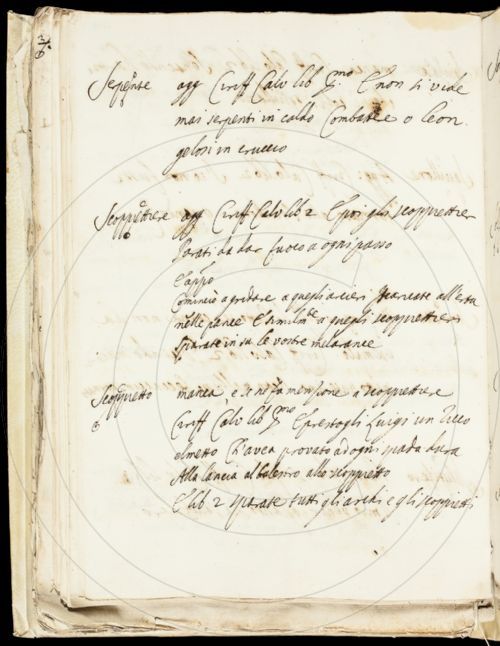 Serpente agg Ciriff Calv lib p.mo E non si vide
mai serpenti in caldo Combattere o leon
gelosi in cruccio
Scoppiettiere agg Ciriff Calv lib 2 E poi gli scoppiettier
parati da dar fuoco a ogni passo
E app.o
Cominciò a gridare a quegli arcieri scaricate all'erta
nelle pance E similm.te a quegli scoppiettieri
sparate in su le vostre melarance
Scoppietto manca e se ne fa menzione a scoppiettiere
Ciriff Calv lib p.mo E prestogli Luigi un ricco
elmetto Ch'avea provato ad ogni spada dura
Alla lancia al balestro allo scoppietto
E lib 2 sparate tutti gli archi e gli scoppietti